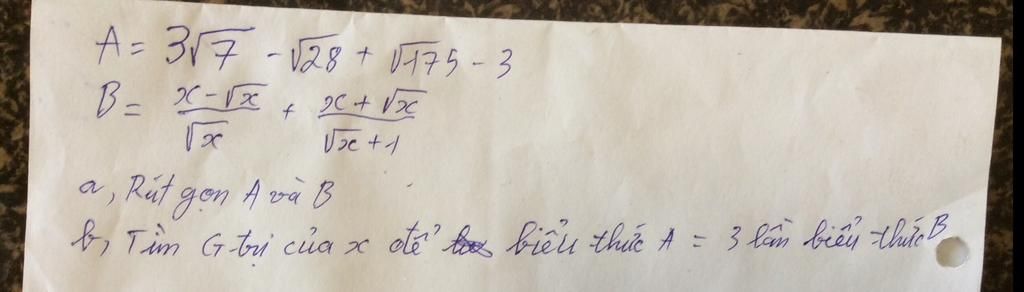 A = 3√7 - √28 + √175 - 3
B = (x - √x)/√x + (x + √x)/(√x + 1)
a, Rút gọn A và B
b, Tìm G trị của x để biểu thức A = 3 lần biểu thức B